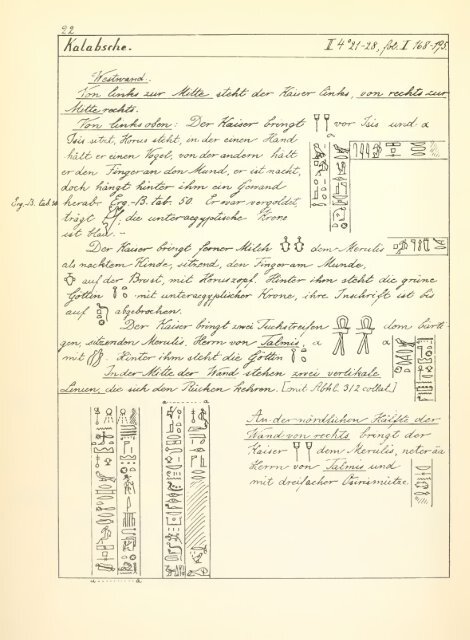 22
Kalabsche. II 4° 21-28, fol. I 168-195.
Westwand.
Von links zur Mitte steht der Kaiser links, von rechts zur
Mitte rechts.
Von links oben: Der Kaiser bringt vor Isis und a
Isis sitzt, Horus steht, in der einen Hand
hält er einen Vogel, von der andern hält
er den Finger an den Mund, er ist nackt,
doch hängt hinter ihm ein Gewand
Erg.-B. tab. 50 herab: Erg.-B. tab. 50. Er war vergoldet,
trägt die unteraegyptische Krone
ist blau. -
Der Kaiser bringt ferner Milch dem Merulis
als nacktem Kinde, sitzend, den Finger am Munde,
auf der Brust, mit Horuszopf. Hinter ihm steht die grüne
Göttin mit unteraegyptischer Krone, ihre Inschrift ist bis
auf abgebrochen.
Der Kaiser bringt zwei Tuchstreifen dem bärti-
gen, sitzenden Merulis. Herrn von Talmis, a a
mit Hinter ihm steht die Göttin
In der Mitte der Wand stehen zwei vertikale
Linien, die sich den Rücken kehren. [mit Abkl. 312 collat.]
a a
An der nördlichen Hälfte der
Wand von rechts bringt der
Kaiser dem Merulis, neter āa
Herrn von Talmis und
mit dreifacher Osirismütze.
a a